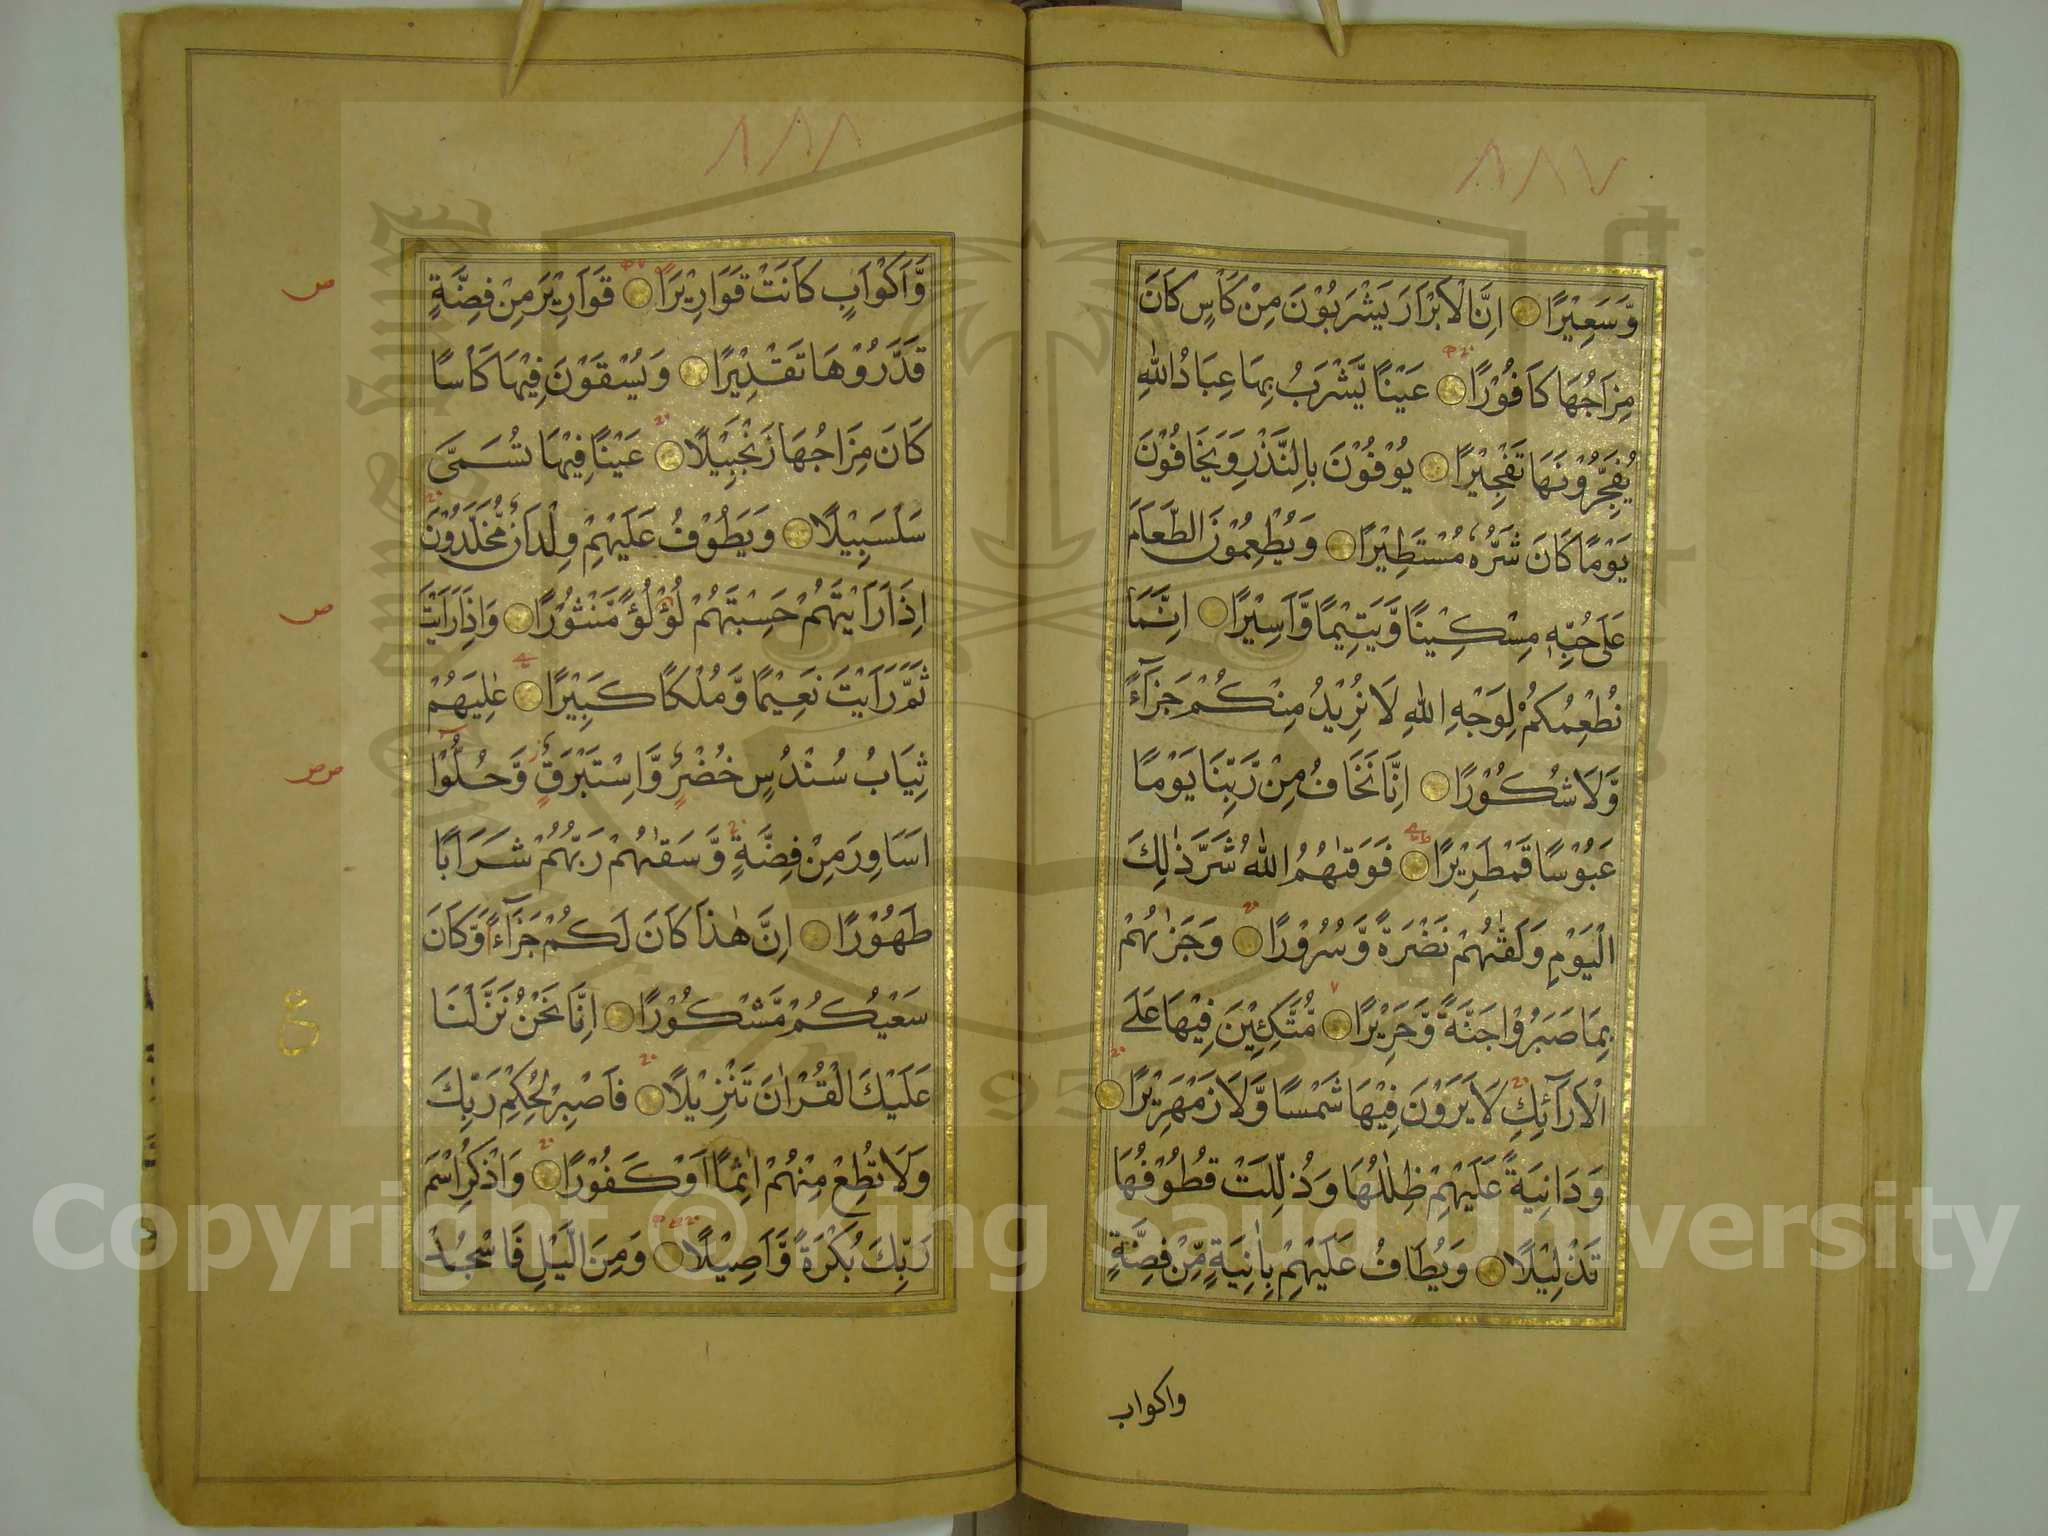 ٨٨٧
وَّسَعِيْرًا اِنَّ الْاَبْرَارَ يَشْرَبُوْنَ مِنْ كَاْسٍ كَانَ
مِزَاجُهَا كَافُوْرًا عَيْنًا يَّشْرَبُ بِهَا عِبَادُ اللّٰهِ
يُفَجِّرُوْنَهَا تَفْجِيْرًا يُوْفُوْنَ بِالنَّذْرِ وَيَخَافُوْنَ
يَوْمًا كَانَ شَرُّهٗ مُسْتَطِيْرًا وَيُطْعِمُوْنَ الطَّعَامَ
عَلٰى حُبِّهٖ مِسْكِيْنًا وَّيَتِيْمًا وَّاَسِيْرًا اِنَّمَا
نُطْعِمُكُمْ لِوَجْهِ اللّٰهِ لَا نُرِيْدُ مِنْكُمْ جَزَآءً
وَّلَا شُكُوْرًا اِنَّا نَخَافُ مِنْ رَّبِّنَا يَوْمًا
عَبُوْسًا قَمْطَرِيْرًا فَوَقٰىهُمُ اللّٰهُ شَرَّ ذٰلِكَ
الْيَوْمِ وَلَقّٰىهُمْ نَضْرَةً وَّسُرُوْرًا وَجَزٰىهُمْ
بِمَا صَبَرُوْا جَنَّةً وَّحَرِيْرًا مُّتَّكِئِيْنَ فِيْهَا عَلَى
الْاَرَآئِكِ لَا يَرَوْنَ فِيْهَا شَمْسًا وَّلَا زَمْهَرِيْرًا
وَدَانِيَةً عَلَيْهِمْ ظِلٰلُهَا وَذُلِّلَتْ قُطُوْفُهَا
تَذْلِيْلًا وَيُطَافُ عَلَيْهِمْ بِاٰنِيَةٍ مِّنْ فِضَّةٍ
واكواب
٨٨٨
وَّاَكْوَابٍ كَانَتْ قَوَارِيْرَا قَوَارِيْرَ مِنْ فِضَّةٍ
قَدَّرُوْهَا تَقْدِيْرًا وَيُسْقَوْنَ فِيْهَا كَاْسًا
كَانَ مِزَاجُهَا زَنْجَبِيْلًا عَيْنًا فِيْهَا تُسَمّٰى
سَلْسَبِيْلًا وَيَطُوْفُ عَلَيْهِمْ وِلْدَانٌ مُّخَلَّدُوْنَ
اِذَا رَاَيْتَهُمْ حَسِبْتَهُمْ لُؤْلُؤًا مَّنْثُوْرًا وَاِذَا رَاَيْتَ
ثَمَّ رَاَيْتَ نَعِيْمًا وَّمُلْكًا كَبِيْرًا عٰلِيَهُمْ
ثِيَابُ سُنْدُسٍ خُضْرٌ وَّاِسْتَبْرَقٌ وَّحُلُّوْٓا
اَسَاوِرَ مِنْ فِضَّةٍ وَّسَقٰىهُمْ رَبُّهُمْ شَرَابًا
طَهُوْرًا اِنَّ هٰذَا كَانَ لَكُمْ جَزَآءً وَّكَانَ
سَعْيُكُمْ مَّشْكُوْرًا اِنَّا نَحْنُ نَزَّلْنَا
عَلَيْكَ الْقُرْاٰنَ تَنْزِيْلًا فَاصْبِرْ لِحُكْمِ رَبِّكَ
وَلَا تُطِعْ مِنْهُمْ اٰثِمًا اَوْ كَفُوْرًا وَاذْكُرِ اسْمَ
رَبِّكَ بُكْرَةً وَّاَصِيْلًا وَمِنَ الَّيْلِ فَاسْجُدْ
ص
ص
صص
ع
Copyright © King Saud University